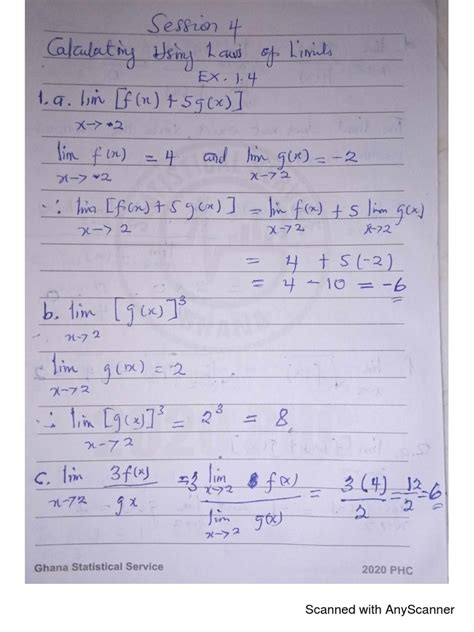 Session 4
Calculating Using Laws of Limits
EX. 1.4
1. a. lim [f(x) + 5g(x)]
x→2
lim f(x) = 4 and lim g(x) = -2
x→2 x→2
∴ lim [f(x) + 5g(x)] = lim f(x) + 5 lim g(x)
x→2 x→2 x→2
= 4 + 5(-2)
= 4 - 10 = -6
b. lim [g(x)]³
x→2
lim g(x) = 2
x→2
∴ lim [g(x)]³ = 2³ = 8
x→2
C. lim 3f(x) / gx = 3 lim f(x) / lim g(x) = 3(4) / 2 = 12 / 2 = 6
x→2 x→2 x→2
Ghana Statistical Service 2020 PHC
Scanned with AnyScanner